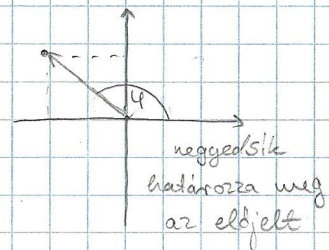 φ
negyedsík
határozza meg
az előjelt